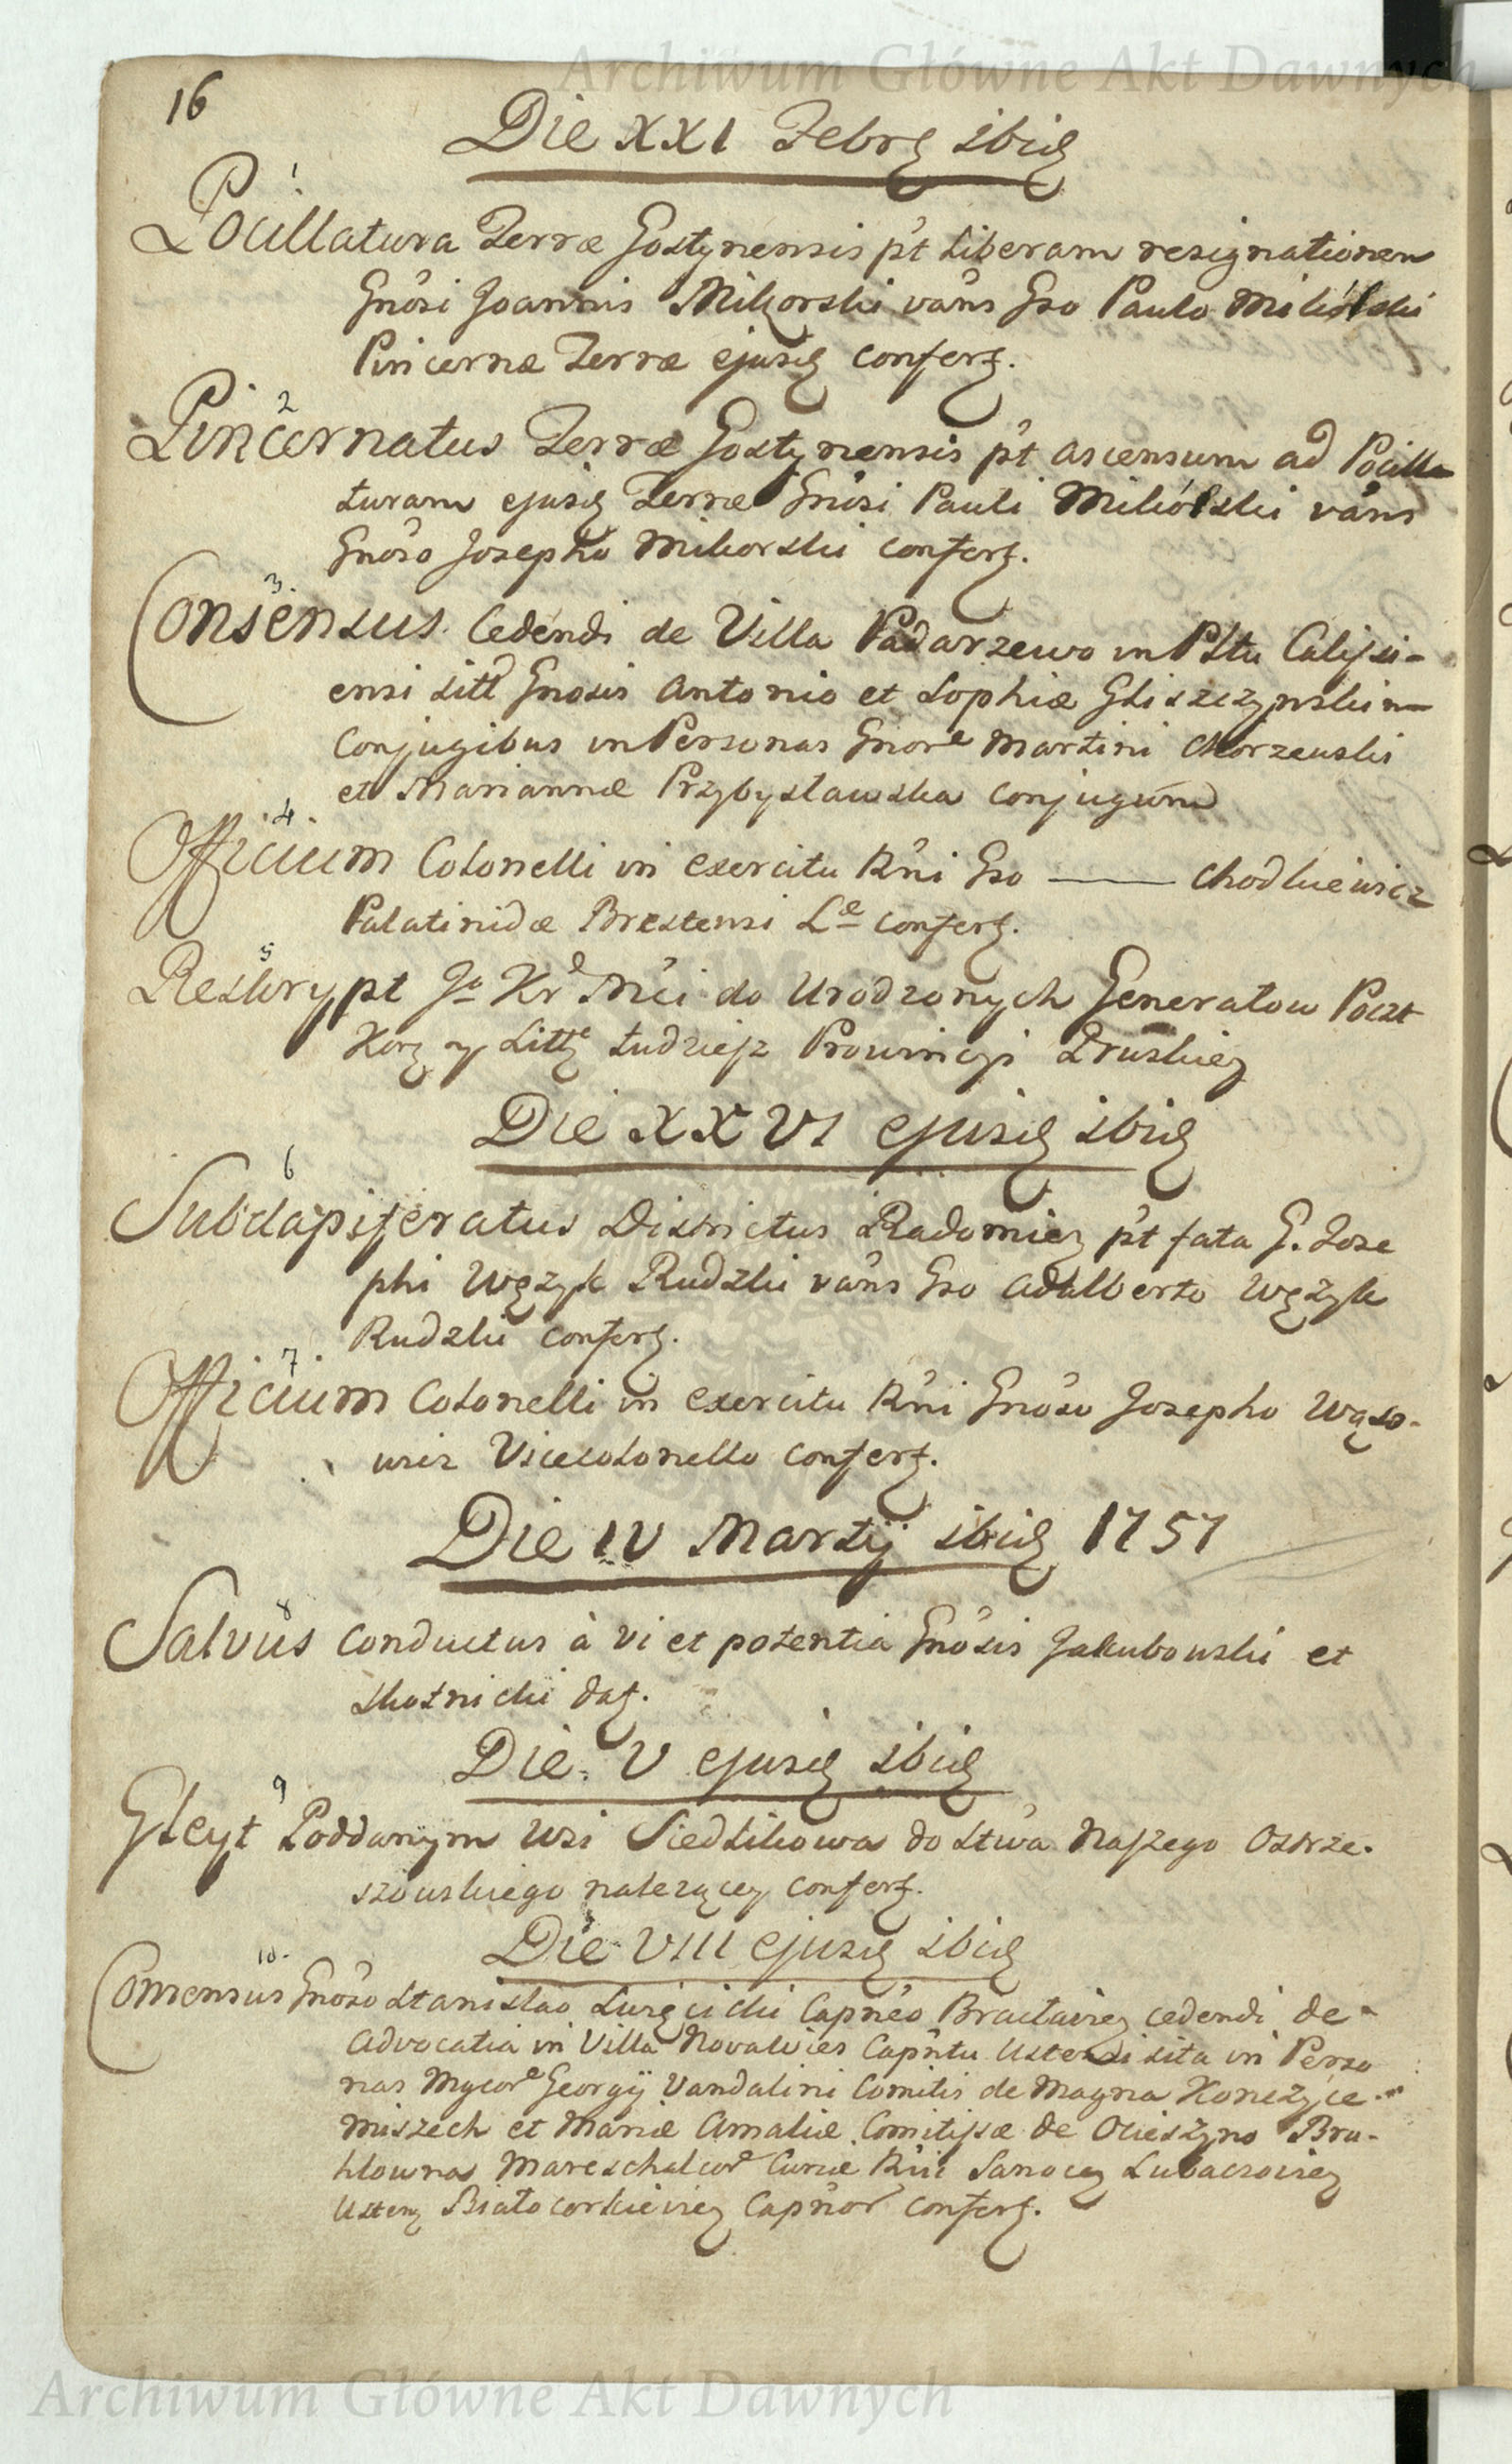 Archiwum Główne Akt Dawnych
16
Die XXI Febrꝫ ibidꝫ
1
Pocillatura Terræ Gostynensis p̃t liberam resignationem
Gnõsi Joannis Mikorski vãns Gso Paulo Mikólski
Pincernæ Terræ ejusdꝫ confertꝫ.
2
Pincernatus Terræ Gostynensis p̃t ascensum ad Pocilla
turam ejusdꝫ Terræ Gnõsi Pauli Mikólski vãns
Gnõso Josepho Mikorski confertꝫ.
3
Consensus cedendi de Villa Padarzewo in Pttu Calissi-
ensi sitt Gnosis Antonio et Sophiæ Gliszczynskim
Conjugibus in Personas Gnore Martini Chorzewski
et Mariannæ Przybysławska conjugum
4
Officium Colonelli in exercitu Rñi Gso ——— Chodkiewicz
Palatinidæ Brestensi Le confertꝫ.
5
Reskrypt Jo Kr Mći do Urodzonych Generałow Poczt
Korꝫ y Littꝫ tudziesz Prowincyi Pruskiey
Die XXVI ejusdꝫ ibidꝫ
6
Subdapiferatus Districtus Radomieꝫ p̃t fata G. Jose
phi Wężyk Rudzki vãns Gso Adalberto Wężyk
Rudzki confertꝫ.
7
Officium Colonelli in exercitu Rñi Gnõso Josepho Wąso-
wicz Vicecolonello confertꝫ.
Die IV Martij ibidꝫ 1757
8
Salvus conductus à vi et potentia Gnõsis Jakubowski et
Skotnicki datꝫ.
Die V ejusdꝫ ibidꝫ
9
Gleyt Poddanym wsi Siedlikowa do Stwa Naszego Ostrze-
szowskiego należącey confertꝫ.
Die VIII ejusdꝫ ibidꝫ
10
Consensus Gnõso Stanislao Suręcicki Capnẽo Bractavieꝫ cedendi de
Advocatia in Villa Novawies Capñtu Ustensi sita in Perso
nas Mgcore Georgij Vandalini Comitis de Magna Konczyce
Miszech et Mariæ Amaliæ Comitissæ de Ocieszyno Bru-
hlowna Mareschalcore Curiæ Rñi Sanoceꝫ Lubaczovieꝫ
Ustenꝫ Białocerkievieꝫ Capñor confertꝫ.
Archiwum Główne Akt Dawnych